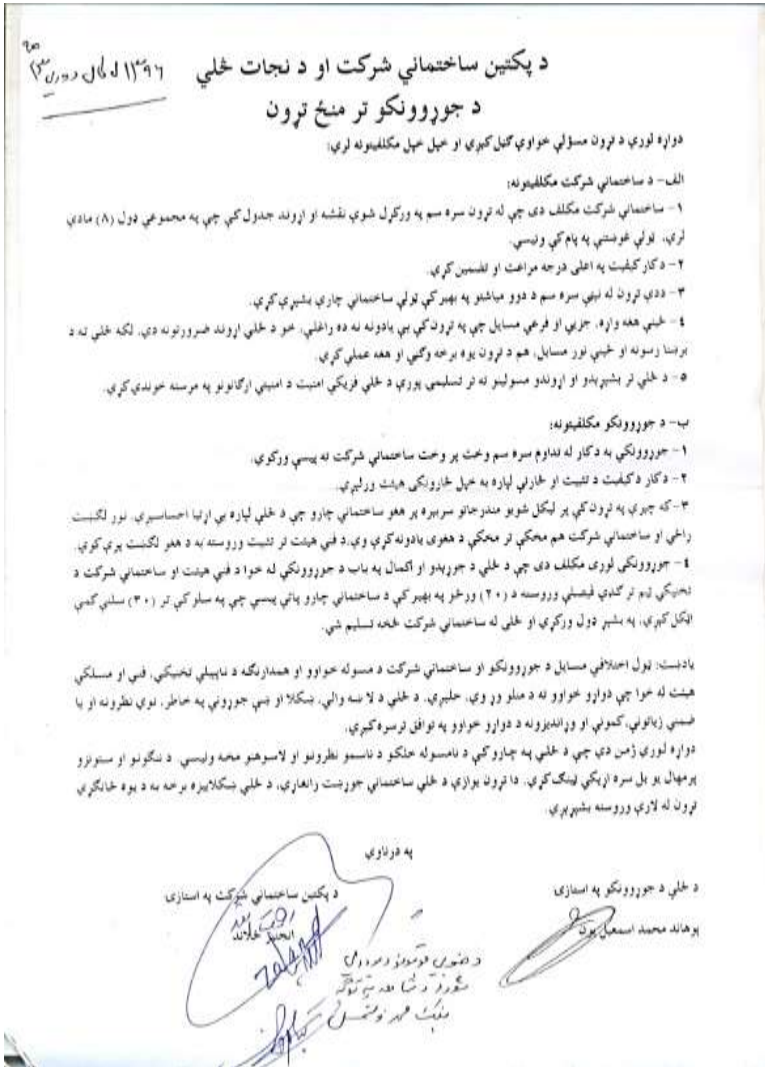 د پکتین ساختماني شرکت او د نجات څلي
د جوړوونکو تر منځ تړون
دواړه لوري د تړون مسؤلې خواوې گڼل کیږي او خپل خپل مکلفیتونه لري:
الف- د ساختماني شرکت مکلفیتونه:
۱- ساختماني شرکت مکلف دی چې له تړون سره سم په ورکړل شوې نقشه او اړوند جدول کې چې په مجموعي ډول (۸) مادې
لري، ټولې غوښتنې په پام کې ونیسي.
۲- د کار کیفیت په اعلی درجه مراعت او تضمین کړي.
۳- ددې تړون له نیټې سره سم د دوو میاشتو په بهیر کې ټولې ساختماني چارې بشپړې کړي.
٤- ځینې هغه واړه، جزیي او فرعي مسایل چې په تړون کې یې یادونه نه ده راغلې، خو د څلي اړوند ضرورتونه دي، لکه څلي ته د
برښنا رسونه او ځینې نور مسایل، هم د تړون یوه برخه وگڼي او هغه عملي کړي.
۵- د څلي تر بشپړېدو او اړوندو مسولینو ته تر تسلیمۍ پورې د څلي فزیکي امنیت د امنیتي ارگانونو په مرسته خوندي کړي.
ب- د جوړوونکو مکلفیتونه:
۱- جوړوونکي به د کار له تداوم سره سم وخت پر وخت ساختماني شرکت ته پیسې ورکوي.
۲- د کار د کیفیت د تثبیت او څارنې لپاره به خپل څارونکی هیئت ورلېږي.
۳- که چېرې په تړون کې پر لیکل شویو مندرجاتو سربېره پر هغو ساختماني چارو چې د څلي لپاره یې اړتیا احساسېږي، نور لگښت
راځي او ساختماني شرکت هم مخکې تر مخکې د هغوی یادونه کړې وي، د فني هیئت تر تثبیت وروسته به د هغو لگښت پرې کوي.
٤- جوړوونکی لوری مکلف دی چې د څلي د جوړېدو او اکمال په باب د جوړوونکو له خوا د فني هیئت او ساختماني شرکت د
تخنیکي ټیم تر گډې فیصلې وروسته د (۲۰) ورځو په بهیر کې د ساختماني چارو پاتې پیسې چې په سلو کې تر (۳۰) سلنې کمې
اټکل کېږي، په بشپړ ډول ورکړي او څلی له ساختماني شرکت څخه تسلیم شي.
یادښت: ټول اختلافي مسایل د جوړوونکو او ساختماني شرکت د مسوله خواوو او همدارنگه د ناپیلي تخنیکي، فني او مسلکي
هیئت له خوا چې دواړو خواوو ته د منلو وړ وي، حلېږي. د څلي د لا ښه والي، ښکلا او ښې جوړونې په خاطر، نوي نظرونه او یا
ضمني زیاتونې، کمونې او وړاندیزونه د دواړو خواوو په توافق ترسره کېږي.
دواړه لوري ژمن دي چې د څلي په چارو کې د نامسوله خلکو د ناسمو نظرونو او لاسوهنو مخه ونیسي. د ننگونو او ستونزو
پر مهال یو بل سره اړیکې ټینگ کړي. دا تړون یوازې د څلي ساختماني جوړښت رانغاړي، د څلي ښکلاییزه برخه به د یوه ځانگړي
تړون له لارې وروسته بشپړېږي.
په درناوي
د څلي د جوړوونکو په استازۍ
د پکتین ساختماني شرکت په استازۍ
پوهاند محمد اسمعیل یون
انجنیر ځلاند